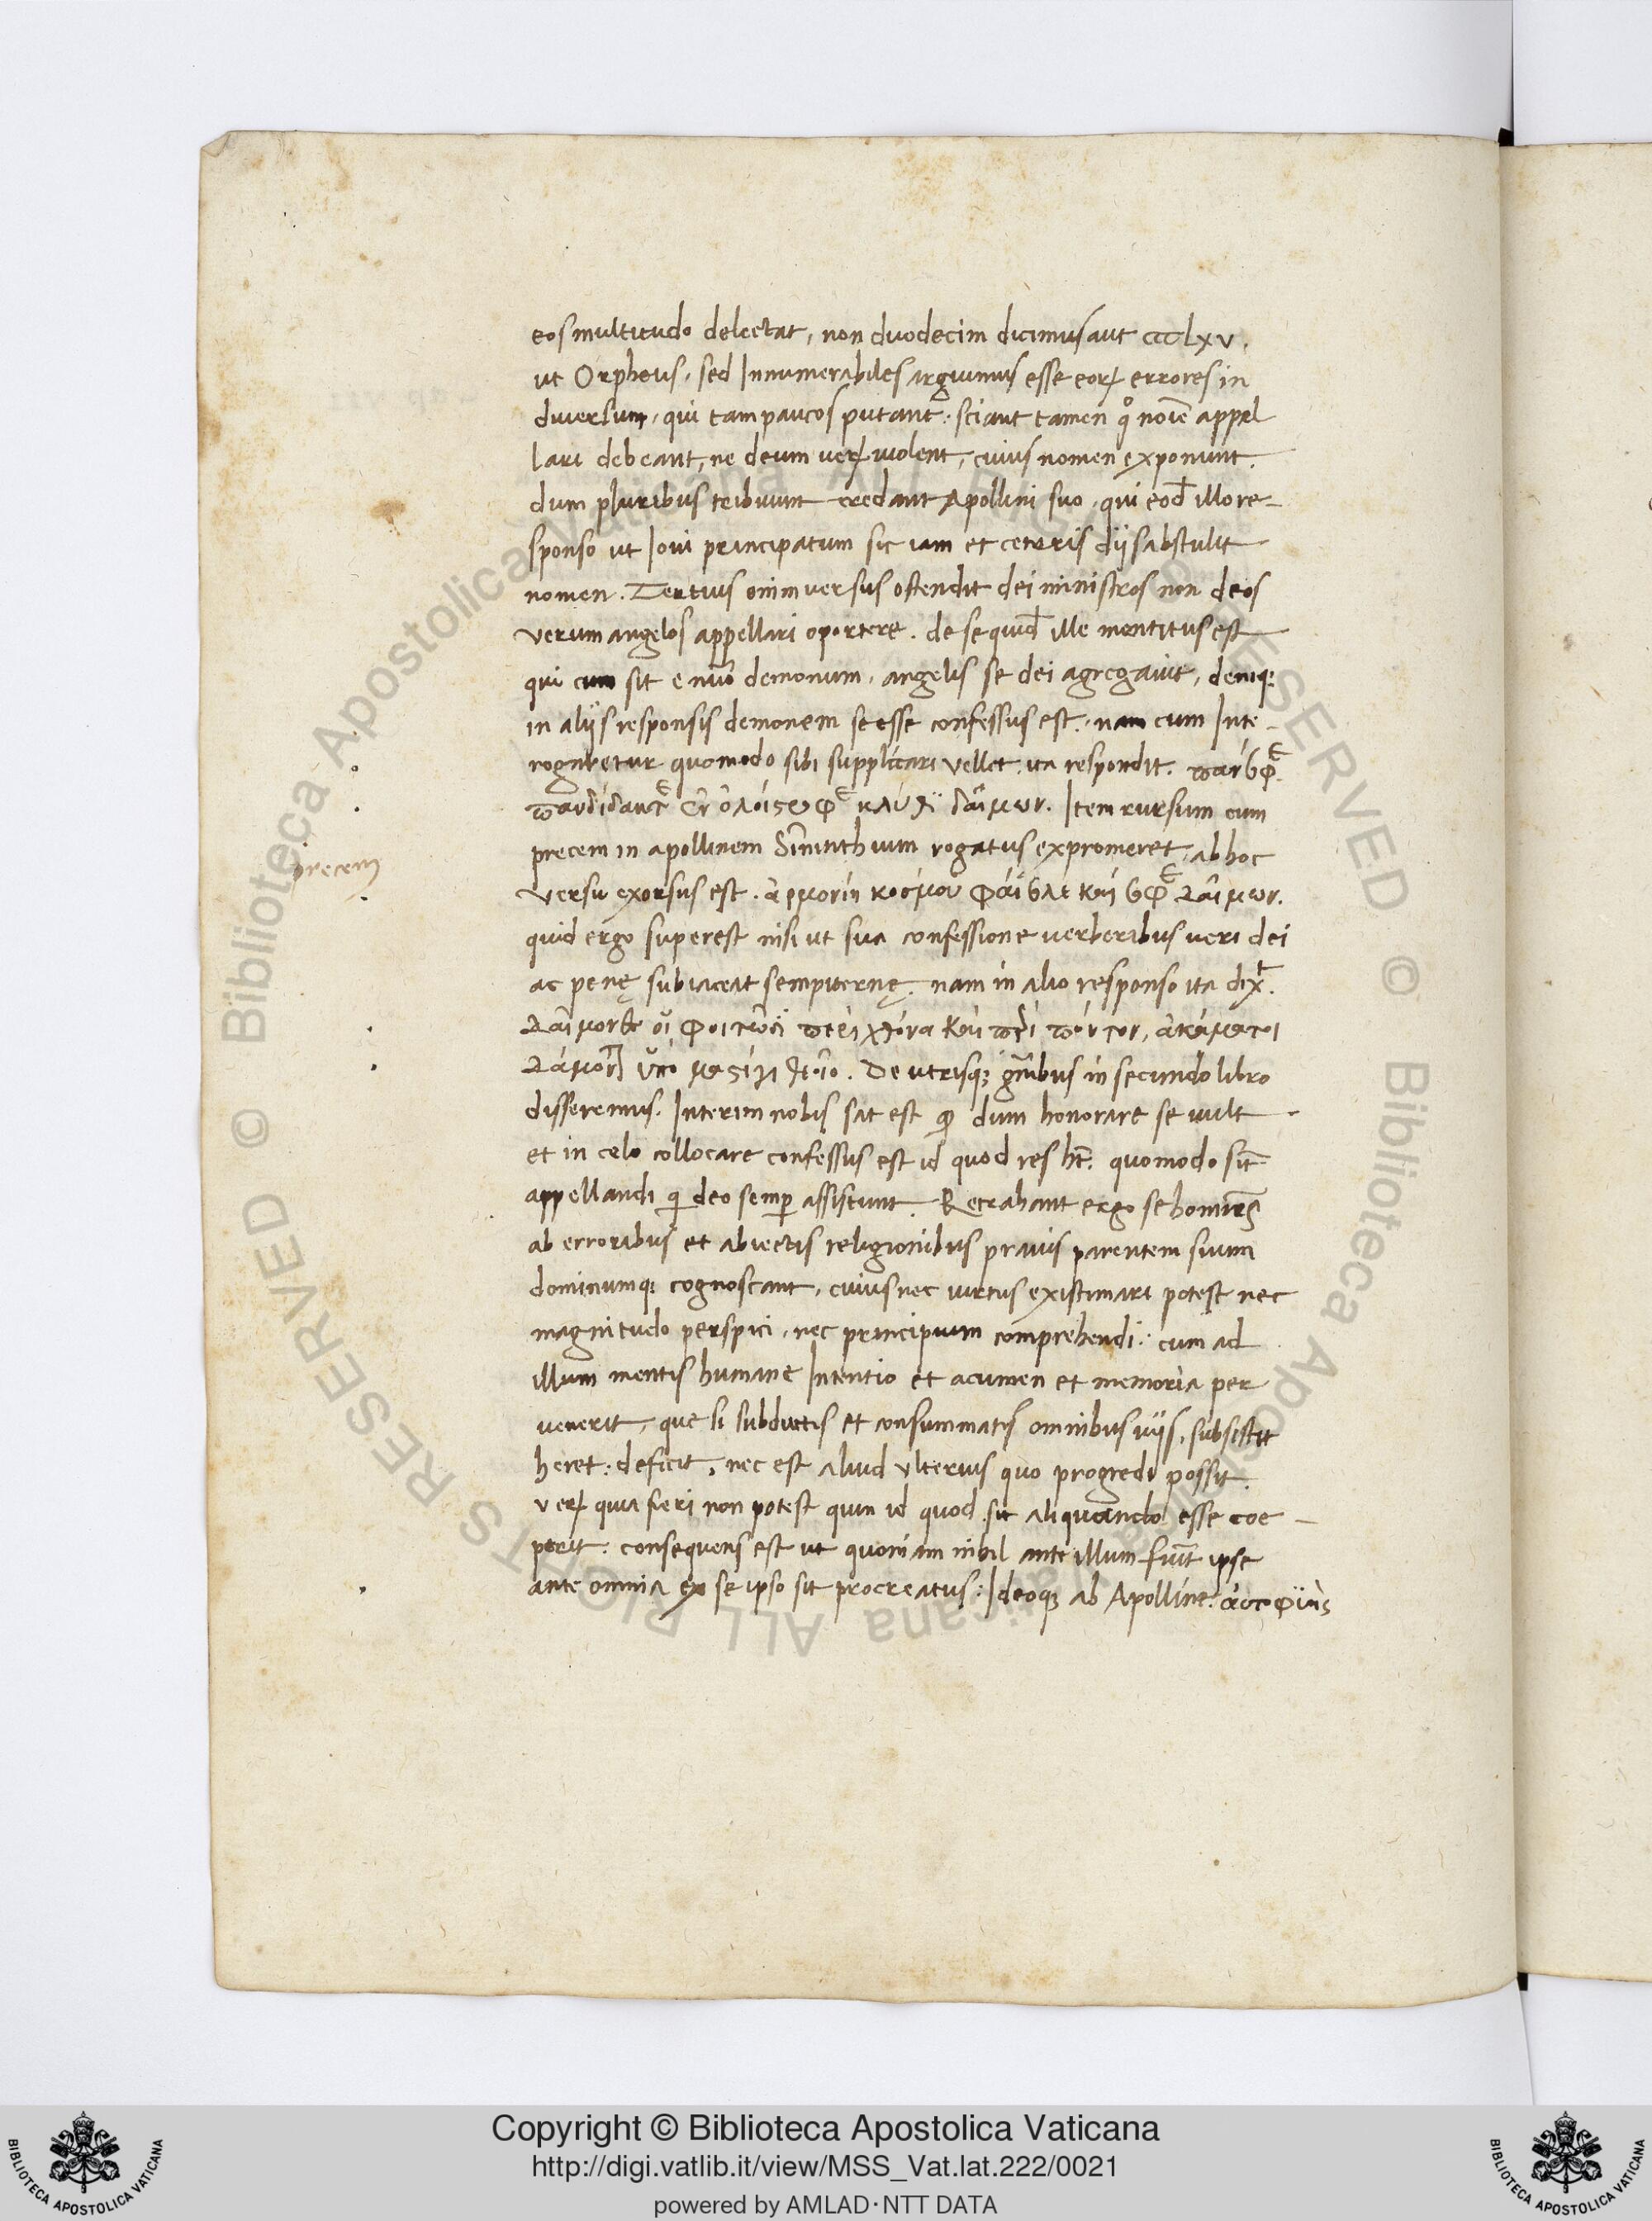 eos multitudo delectat, non duodecim dicimus aut ccclxv,
ut Orpheus, sed Innumerabiles arguimus esse eorꝝ errores in
diversum, qui tam paucos putant: sciant tamen qͦ noīe appel
lari debeant, ne deum verꝝ violent, cuius nomen exponunt,
dum pluribus tribuunt credant Apollini suo, qui eod̄ illo re-
sponso ut Iovi principatum sic iam et ceteris dijs abstulit
nomen. Tertius enim versus ostendit dei ministros non deos
verum angelos appellari oportere. de se quid̄ ille mentitus est
qui cum sit e nūo demonum, angelis se dei agregavit, deniqꝫ
in alijs responsis demonem se esse confessus est. nam cum Inte-
rogaretur quomodo sibi supplicari vellet, ita respondit. πάνσοφε
πανδίδακτε κλῦθι δαῖμων. Item rursum cum
precem in apollinem Siminthium rogatus expromeret, ab hoc
precem
versu exorsus est. ἁρμονίη κόσμου φαι καὶ σοφὲ δαῖμων.
quid ergo superest nisi ut sua confessione verberibus veri dei
ac penę subiaceat sempiternę. nam in alio responso ita dix̄t.
Δαίμονες οἳ φοιτῶσι περὶ χθόνα καὶ περὶ πόντον, ἀκάματοι
De utrisqꝫ gn̄ibus in secundo libro
disseremus. Interim nobis sat est dum honorare se vult
et in celo collocare confessus est id quod res ht̄. quomodo sīt
appellandi qi deo semꝑ assistunt. Retrahant ergo se homines
ab erroribus et abiectis religionibus pravis parentem suum
dominumqꝫ cognoscant, cuius nec virtus existimari potest nec
magnitudo perspici, nec principium comprehendi: cum ad
illum mentis humane Intentio et acumen et memoria per
venerit, que si subductis et consummatis omnibus vijs, subsistit
heret: deficit, nec est aliud ulterius quo progredi possit.
verꝝ quia fieri non potest quin id quod sit aliquando esse coe-
perit: consequens est ut quoniam nihil ante illum fuit ipse
ante omnia ex se ipso sit procreatus: Ideoqꝫ ab Apolline: αυτοφυὴς
Copyright © Biblioteca Apostolica Vaticana
http://digi.vatlib.it/view/MSS_Vat.lat.222/0021
powered by AMLAD·NTT DATA